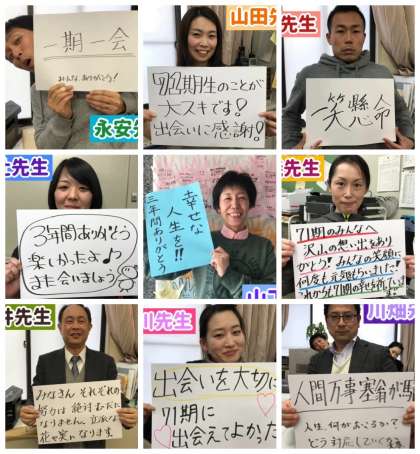 一期一会
みんな、ありがとう!
永安先
山田先
71期生のことが
大スキです!
出会いに感謝!
先生
一笑懸命
先生
3年間ありがとう
楽しかったよ♪
また会いましょう
幸せな
人生を!!
三年間ありがとう
先生
71期のみんなへ
沢山の想い出をあり
がとう!みんなの笑顔に
何度も元気もらいました!
これからも71期の幸を祈っています
井先生
みなさん それぞれの
努力は 絶対むだに
なりません。立派な
花や実になります。
川先生
出会いを大切に
71期に
出会えてよかった
川畑先
人間万事塞翁が馬
人生、何がおこるか?
どう対応していくか